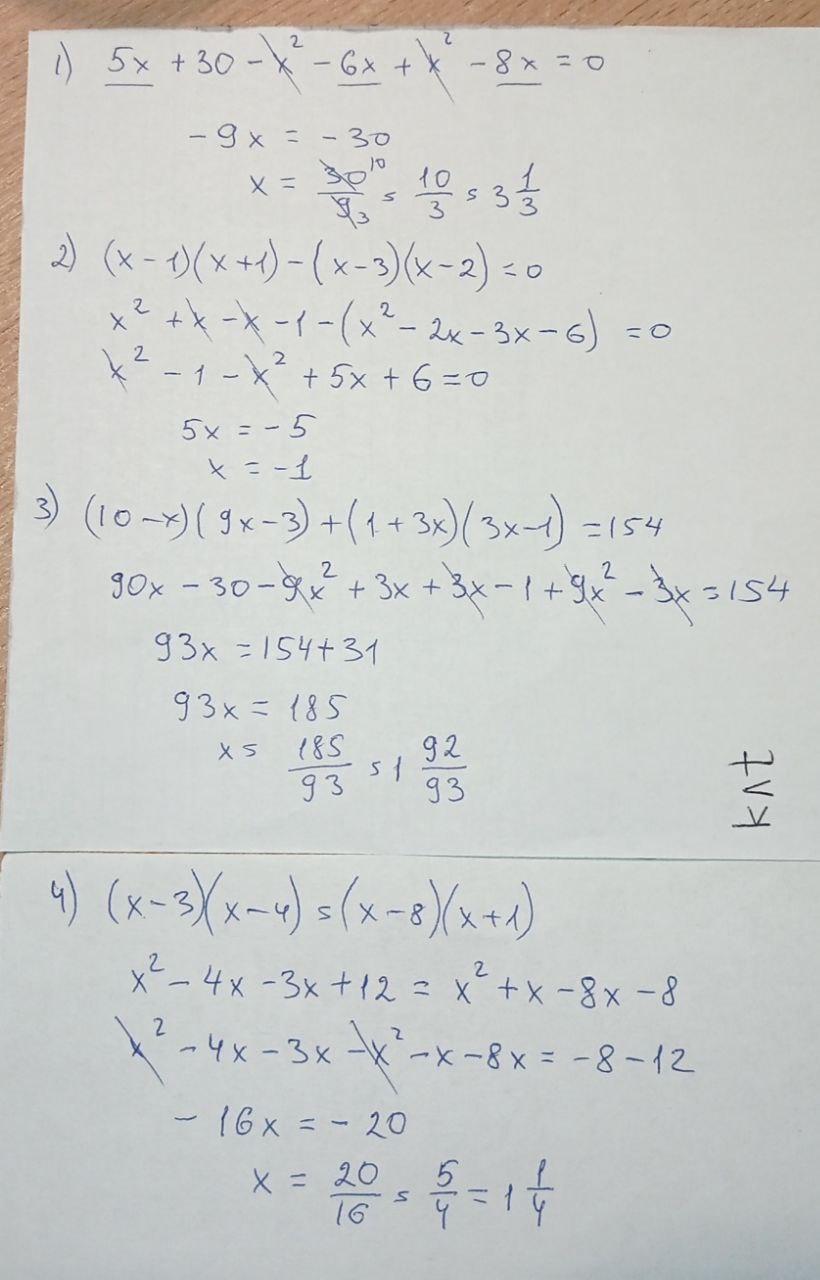 1) 5x + 30 - x² - 6x + x² - 8x = 0
-9x = -30
x = 30/9 10/3 = 10/3 = 3 1/3
2) (x-1)(x+1)-(x-3)(x-2)=0
x² + x - x - 1 - (x² - 2x - 3x - 6) = 0
x² - 1 - x² + 5x + 6 = 0
5x = -5
x = -1
3) (10-x)(9x-3)+(1+3x)(3x-1)=154
90x - 30 - 9x² + 3x + 3x - 1 + 9x² - 3x = 154
93x = 154+31
93x = 185
x = 185/93 = 1 92/93
4) (x-3)(x-4)=(x-8)(x+1)
x² - 4x - 3x + 12 = x² + x - 8x - 8
x² - 4x - 3x - x² - x - 8x = -8 - 12
-16x = -20
x = 20/16 = 5/4 = 1 1/4